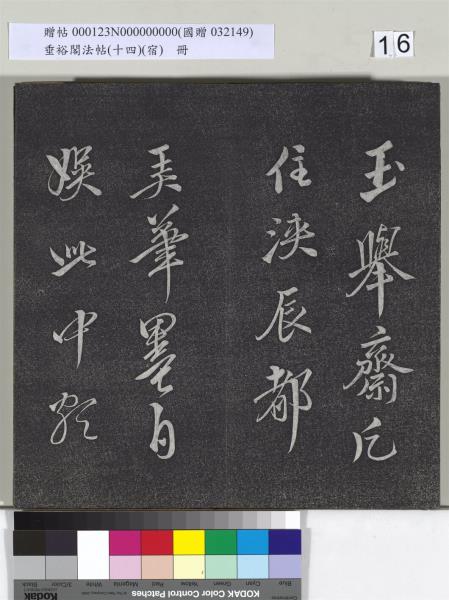 贈帖 000123N000000000(國贈 032149)
垂裕閣法帖(十四)(宿) 冊
16
玉舉齋凡
住浹辰都
弄筆墨自
娛此中
Black 3/Color White Magenta Red Yellow Green Cyan Blue
Kodak
KODAK Color Control Patches